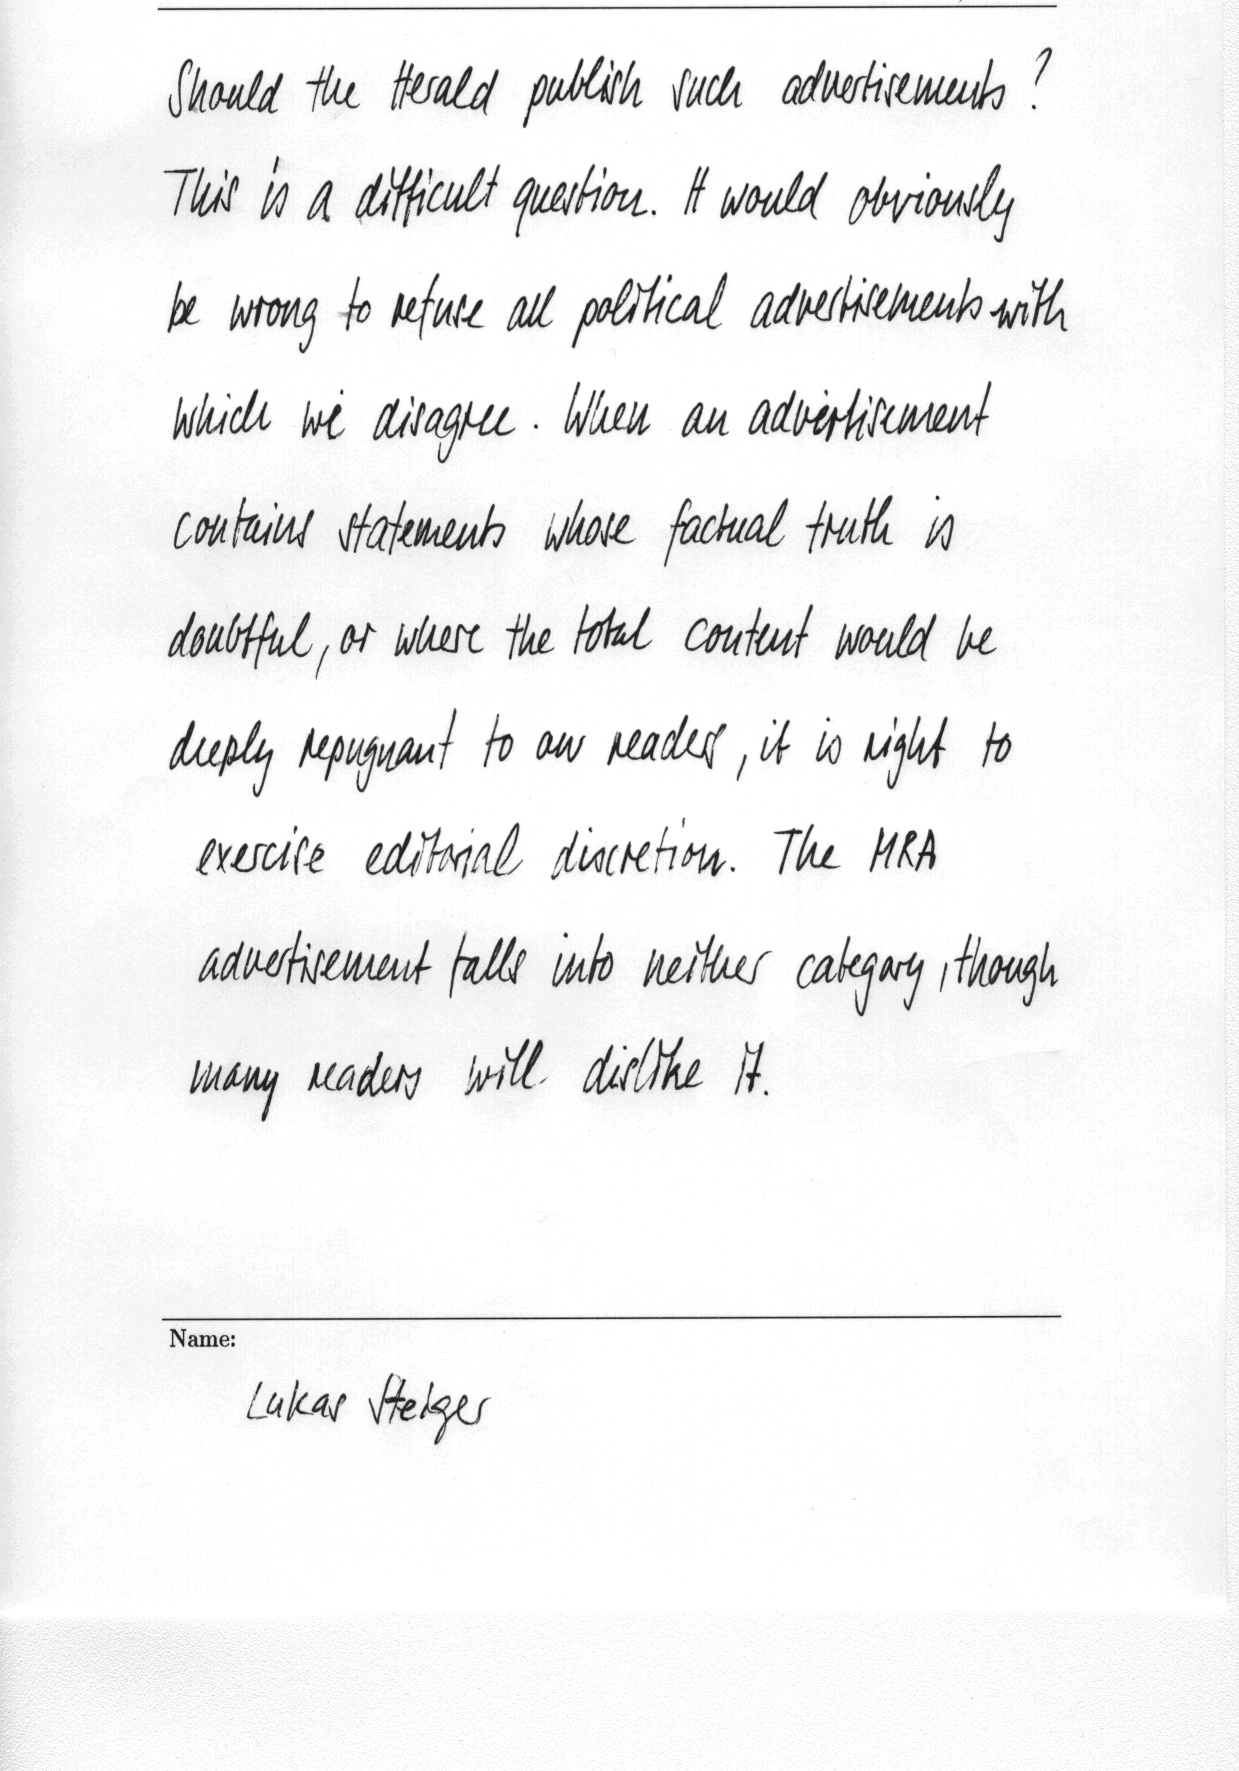 Should the Herald publish such advertisements ?
This is a difficult question. It would obviously
be wrong to refuse all political advertisements with
which we disagree. When an advertisement
contains statements whose factual truth is
doubtful, or where the total content would be
deeply repugnant to our readers, it is right to
exercise editorial discretion. The MRA
advertisement falls into neither category, though
many readers will dislike it.
Name:
Lukas Steiger